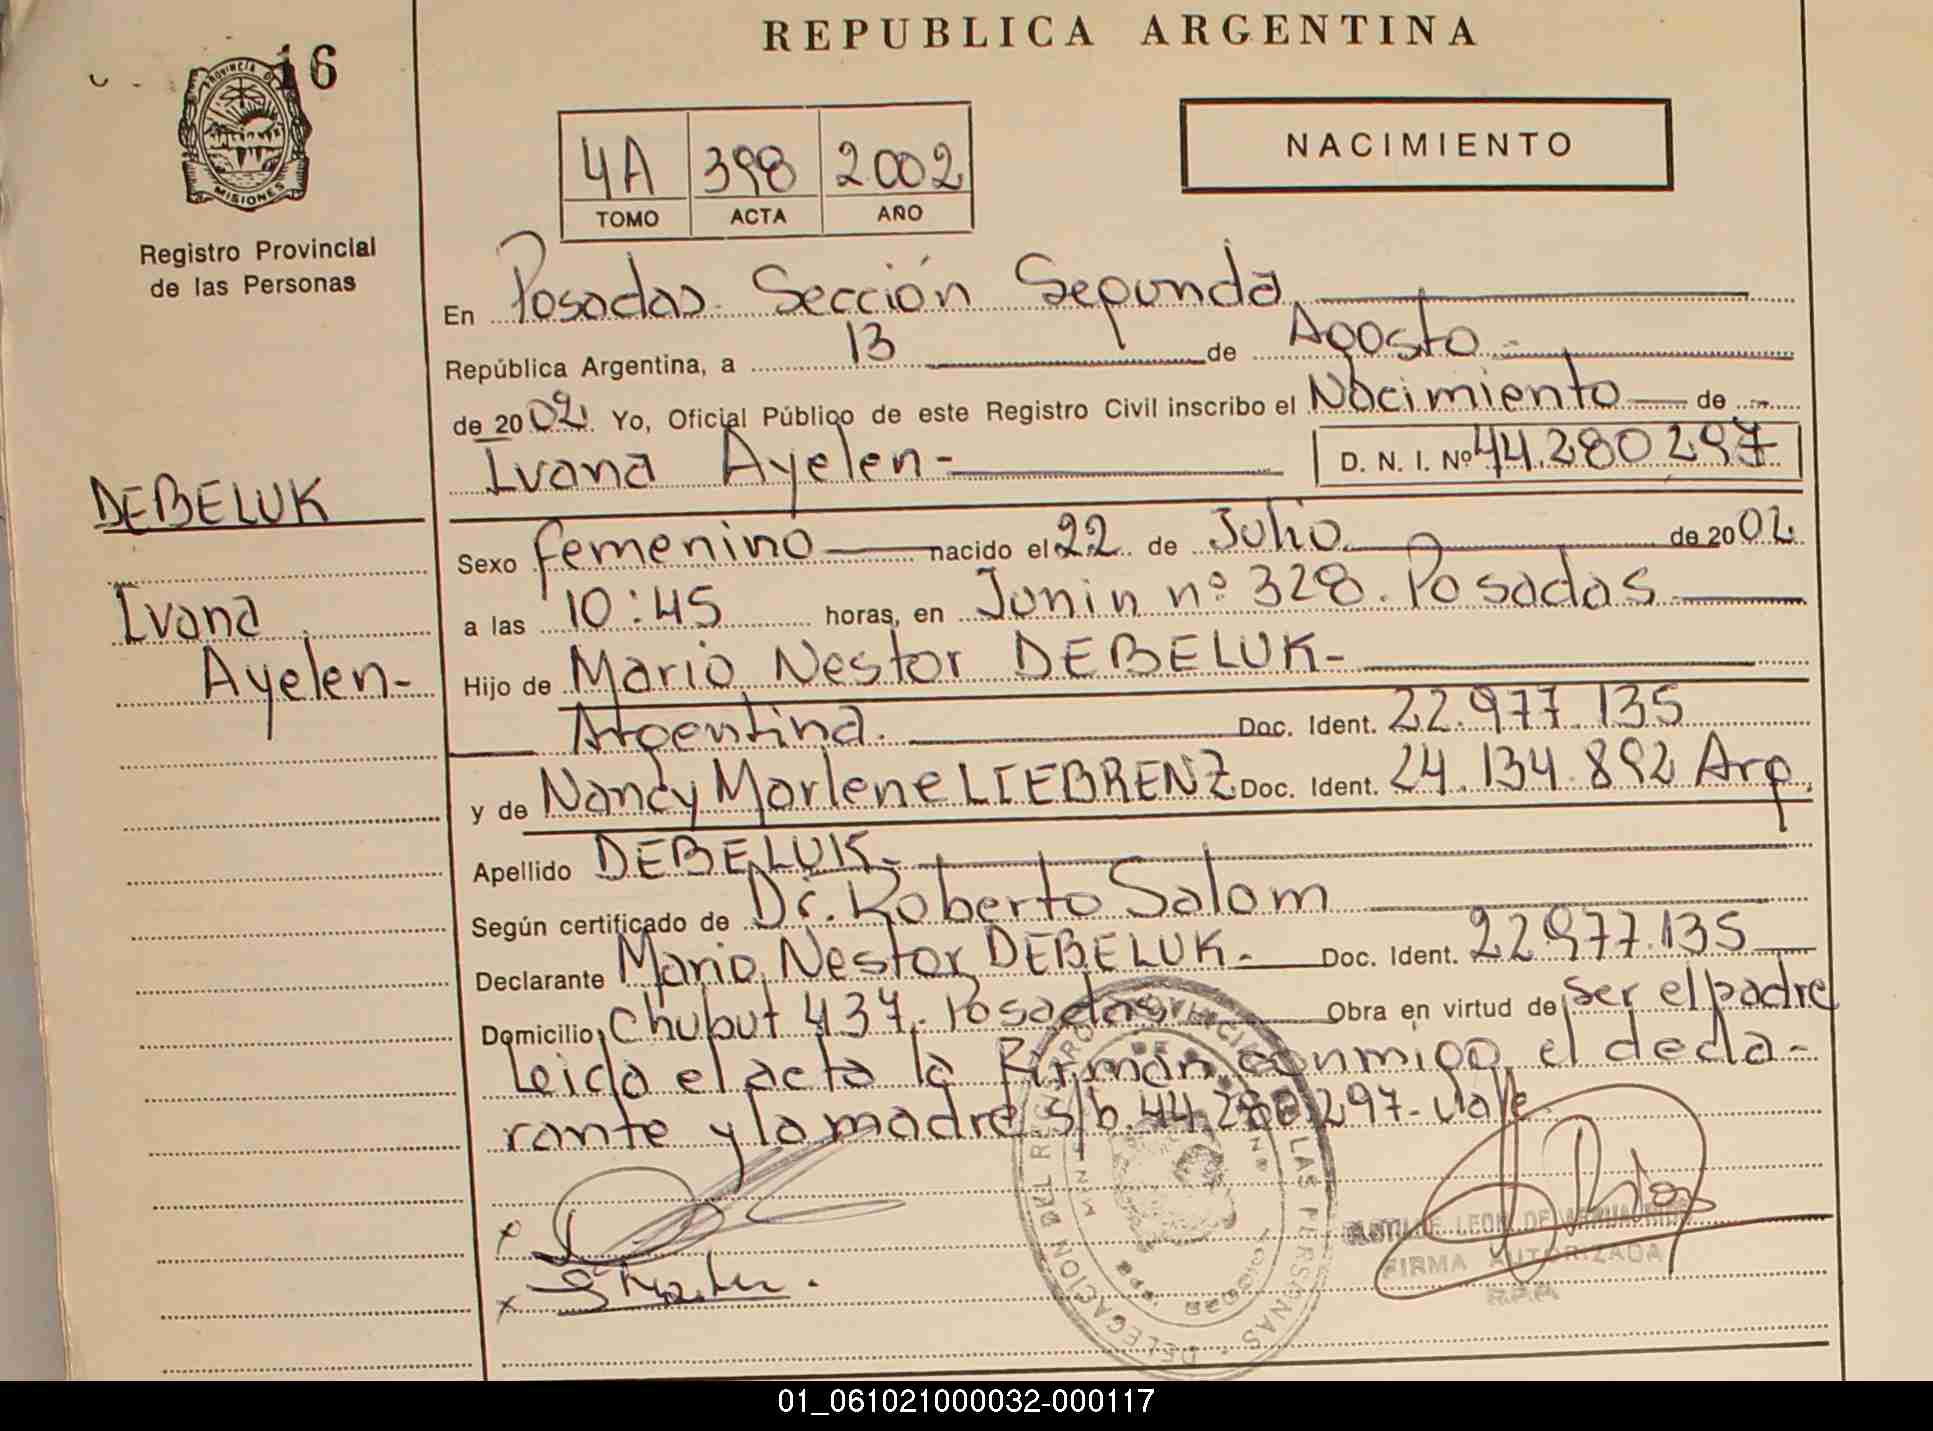 REPUBLICA ARGENTINA
16
PROVINCIA DE
MISIONES
Registro Provincial
de las Personas
4A 398 2002
TOMO ACTA AÑO
NACIMIENTO
En Posadas. Sección Segunda
República Argentina, a 13 de Agosto
de 2002 Yo, Oficial Público de este Registro Civil inscribo el Nacimiento de
Ivana Ayelen- D. N. I. Nº 44.280297
DEBELUK
Ivana
Ayelen-
Sexo femenino nacido el 22 de Julio de 2002
a las 10:45 horas, en Junin nº 328. Posadas
Hijo de Mario Nestor DEBELUK-
Argentina. Doc. Ident. 22.977.135
y de Nancy Marlene LIEBRENZ Doc. Ident. 24.134.892 Arg.
Apellido DEBELUK-
Según certificado de Dr. Roberto Salom
Declarante Mario Nestor DEBELUK- Doc. Ident. 22977.135
Domicilio Chubut 437. Posadas Obra en virtud de ser el padre
Leida el acta la firman conmigo el decla-
rante y la madre s/b. 44.280297- Vale
DELEGACION DEL REGISTRO PROVINCIAL DE LAS PERSONAS
FIRMA AUTORIZADA
01_061021000032-000117